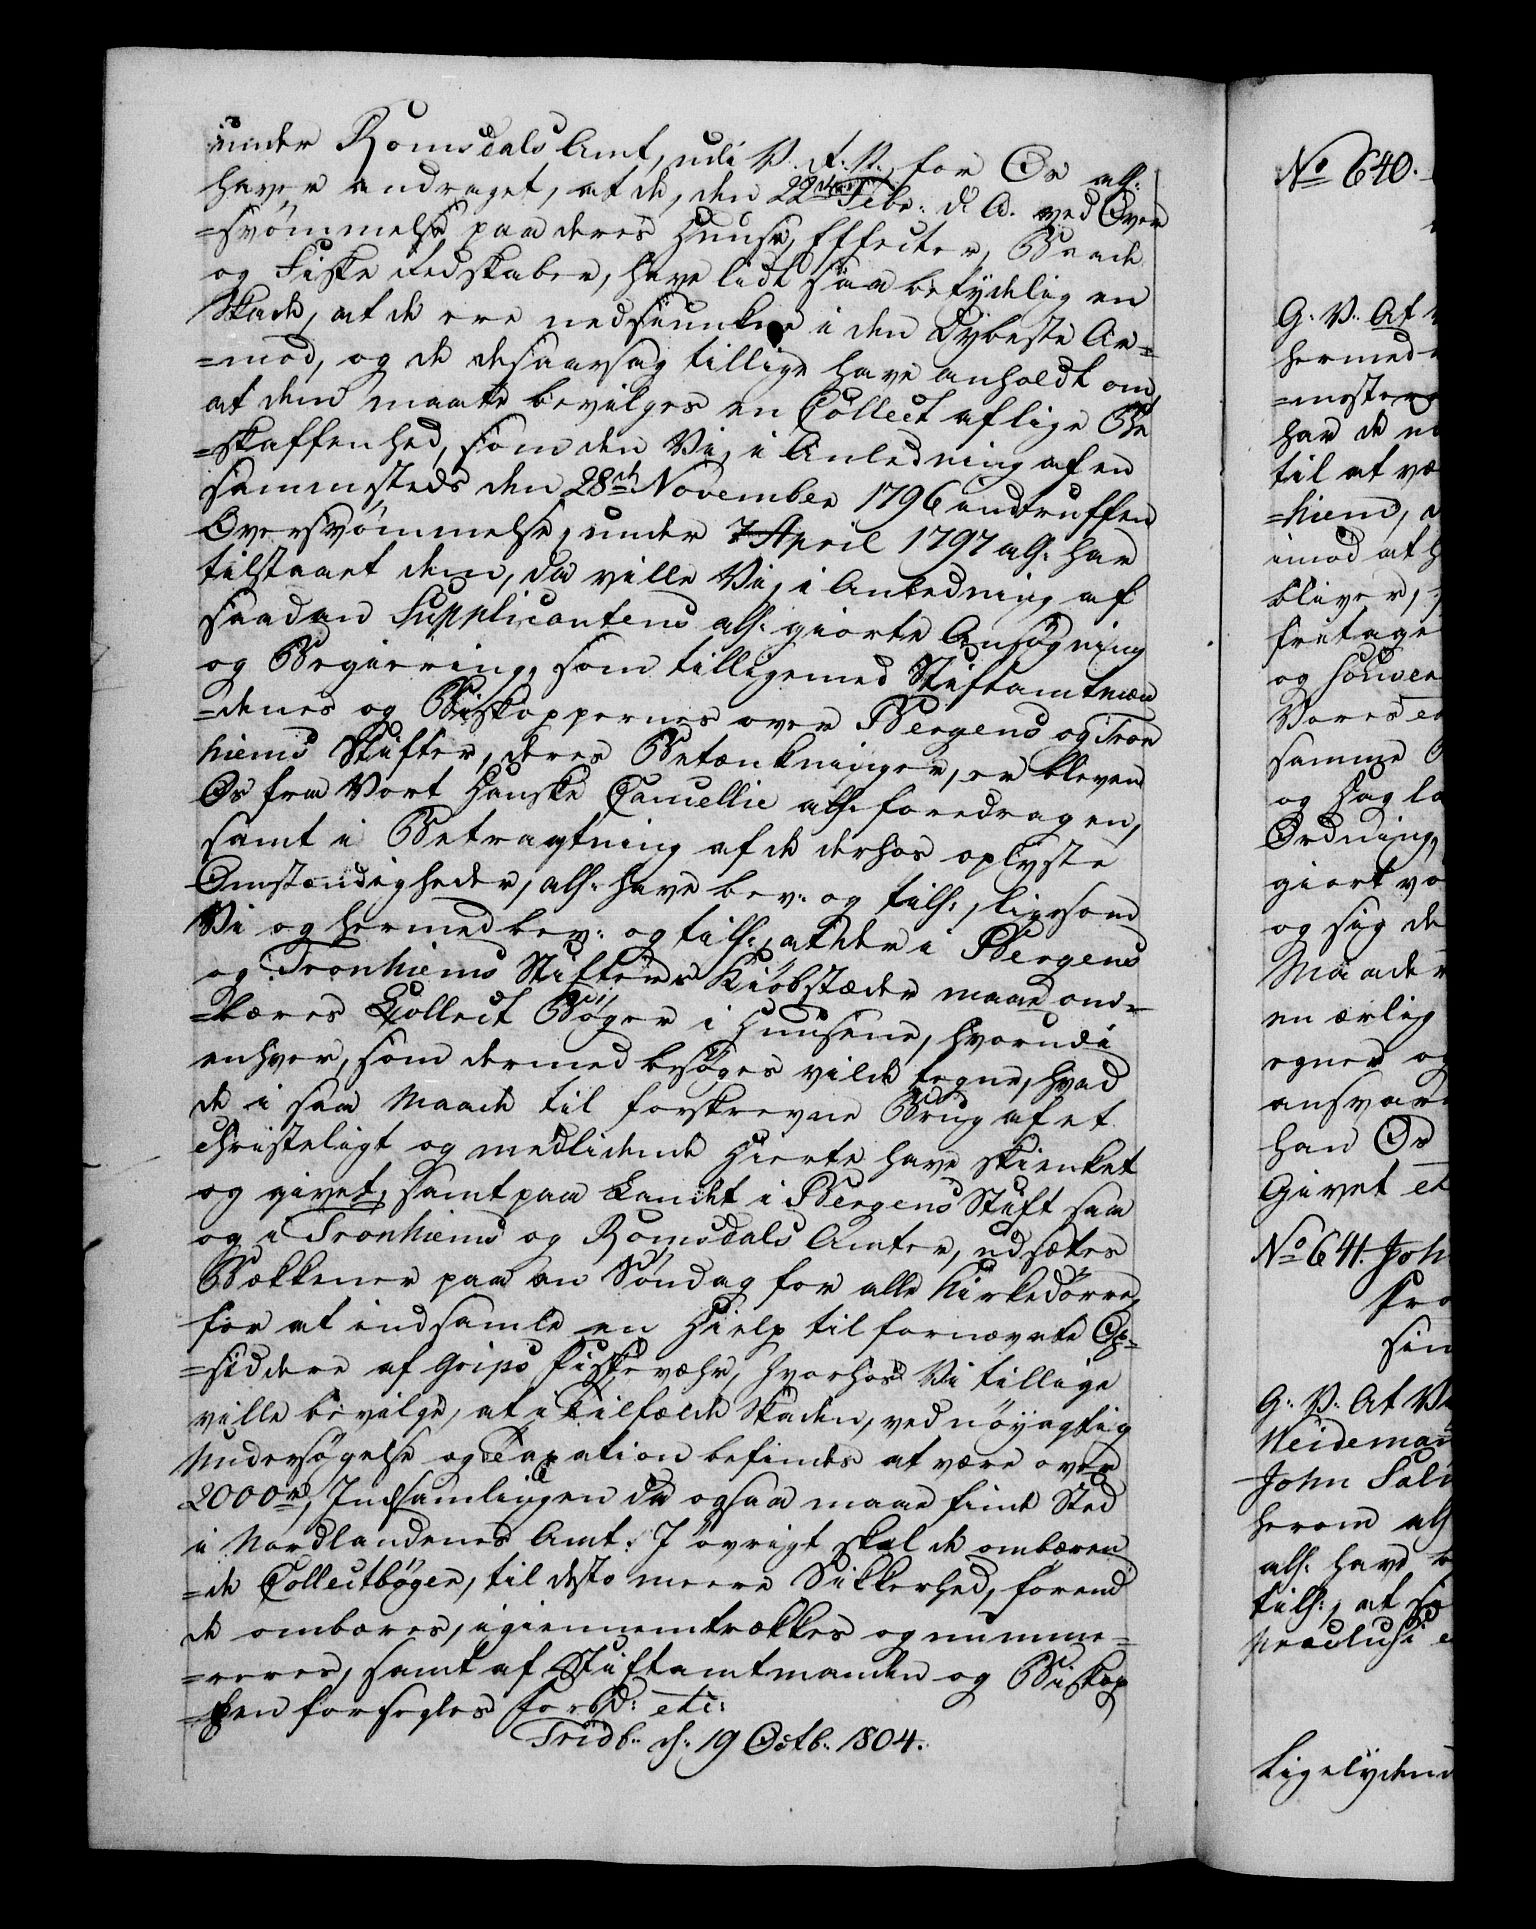 under Romsdals Amt, udi V. R. N., for Os all:
haver andraget, at de, den 22de Febr: d. A. ved Over
=svømmelse paa deres Huuse, Effecter, Baade
og Fiske Redskaber, have lidt saa betydelig en
Skade, at de ere nedsiunkne i den dybeste Ar=
=mod, og de desaarsag tillige have anholdt om,
at dem maatte bevilges en Collect af lige Be
=skaffenhed, som den Vi, i Anledning af en
sammesteds den 28de November 1796 indtruffen
Oversvømmelse, under 7 April 1797 all: har
tilstaaet dem, da ville Vi, i Anledning af
saadan Supplicantens all: giorte Ansøgning
og Begiering, som tilligemed Stiftamtmæn
=denes og Biskoppernes over Bergens og Tron
hiems Stifter, deres Betænkninger, er bleven
Os fra Vort Danske Cancellie all: foredragen,
samt i Betragtning af de derhos oplyste
Omstændigheder, all: have bev: og till:, ligesom
Vi og hermed bev: og till:, at der i Bergens
og Tronhiems Stifters Kiøbstæder maae om=
=bæres Collect Bøger i Huusene, hvorudi
enhver, som dermed besøges vilde tegne, hvad
de i saa Maade til forskrevne Brug af et
christeligt og medlidende Hierte have skienket
og givet, samt paa Landet i Bergens Stift saa
og i Tronhiems og Romsdals Amter, udsættes
Bækkener paa en Søndag for alle Kirkedørre,
for at indsamle en Hielp til fornævnte Op=
=siddere af Grips Fiskevæhr, hvorhos Vi tillige
ville bevilge, at i Tilfælde Skaden, ved nøyagtig
Undersøgelse og Taxation befindes at være over
2000 rd, Indsamlingen da ogsaa maae finde Sted
i Nordlandenes Amt. I øvrigt skal de ombæren
=de Collectbøger, til desto meere Sikkerhed, førend
de ombæres, igiennemtrækkes og numme=
=reres, samt af Stiftamtmanden og Biskop
=pen forsegles forbd: etc:
Fridb: d: 19 Octb: 1804.
No 640.
G. V. At
hermed
=mester
har de
til at væ
=hiem,
imod at
bliver,
fritage
og
Vores
samme
og
Ordning,
giort
og sig de
Maader
en ærlig
egner og
ansvar
han Os
Givet etc
No 641. Joh
fra
sin
G. V. At Vi
Weideman
John
herom all
all: have b
till:, at
Præclusi
Ligelydend